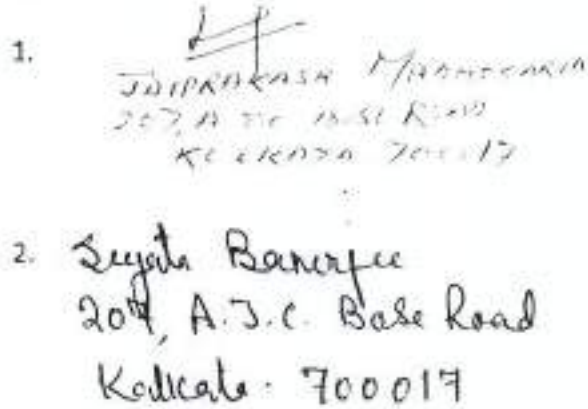 1.
JAIPRAKASH
207, A J C BOSE ROAD
KOLKATA 700017
2. Sujata Banerjee
207, A.J.C. Bose Road
Kolkata- 700017